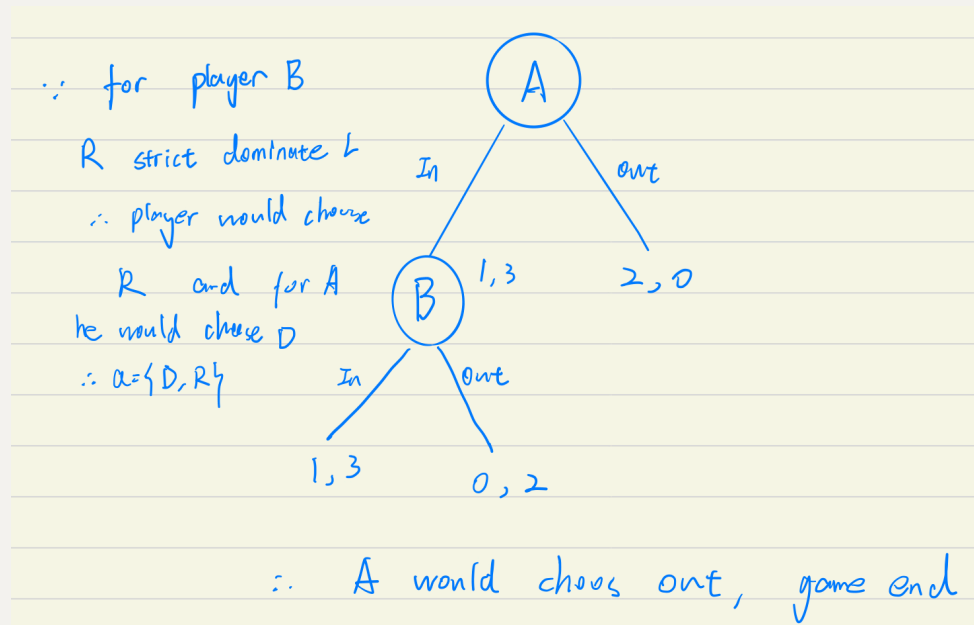 ∵ for player B
R strict dominate L
∴ player would choose
R and for A
he would chuse D
∴ a={D,R}
A
In
out
B
1,3
2,0
In
out
1,3
0,2
∴ A would choos out, game end